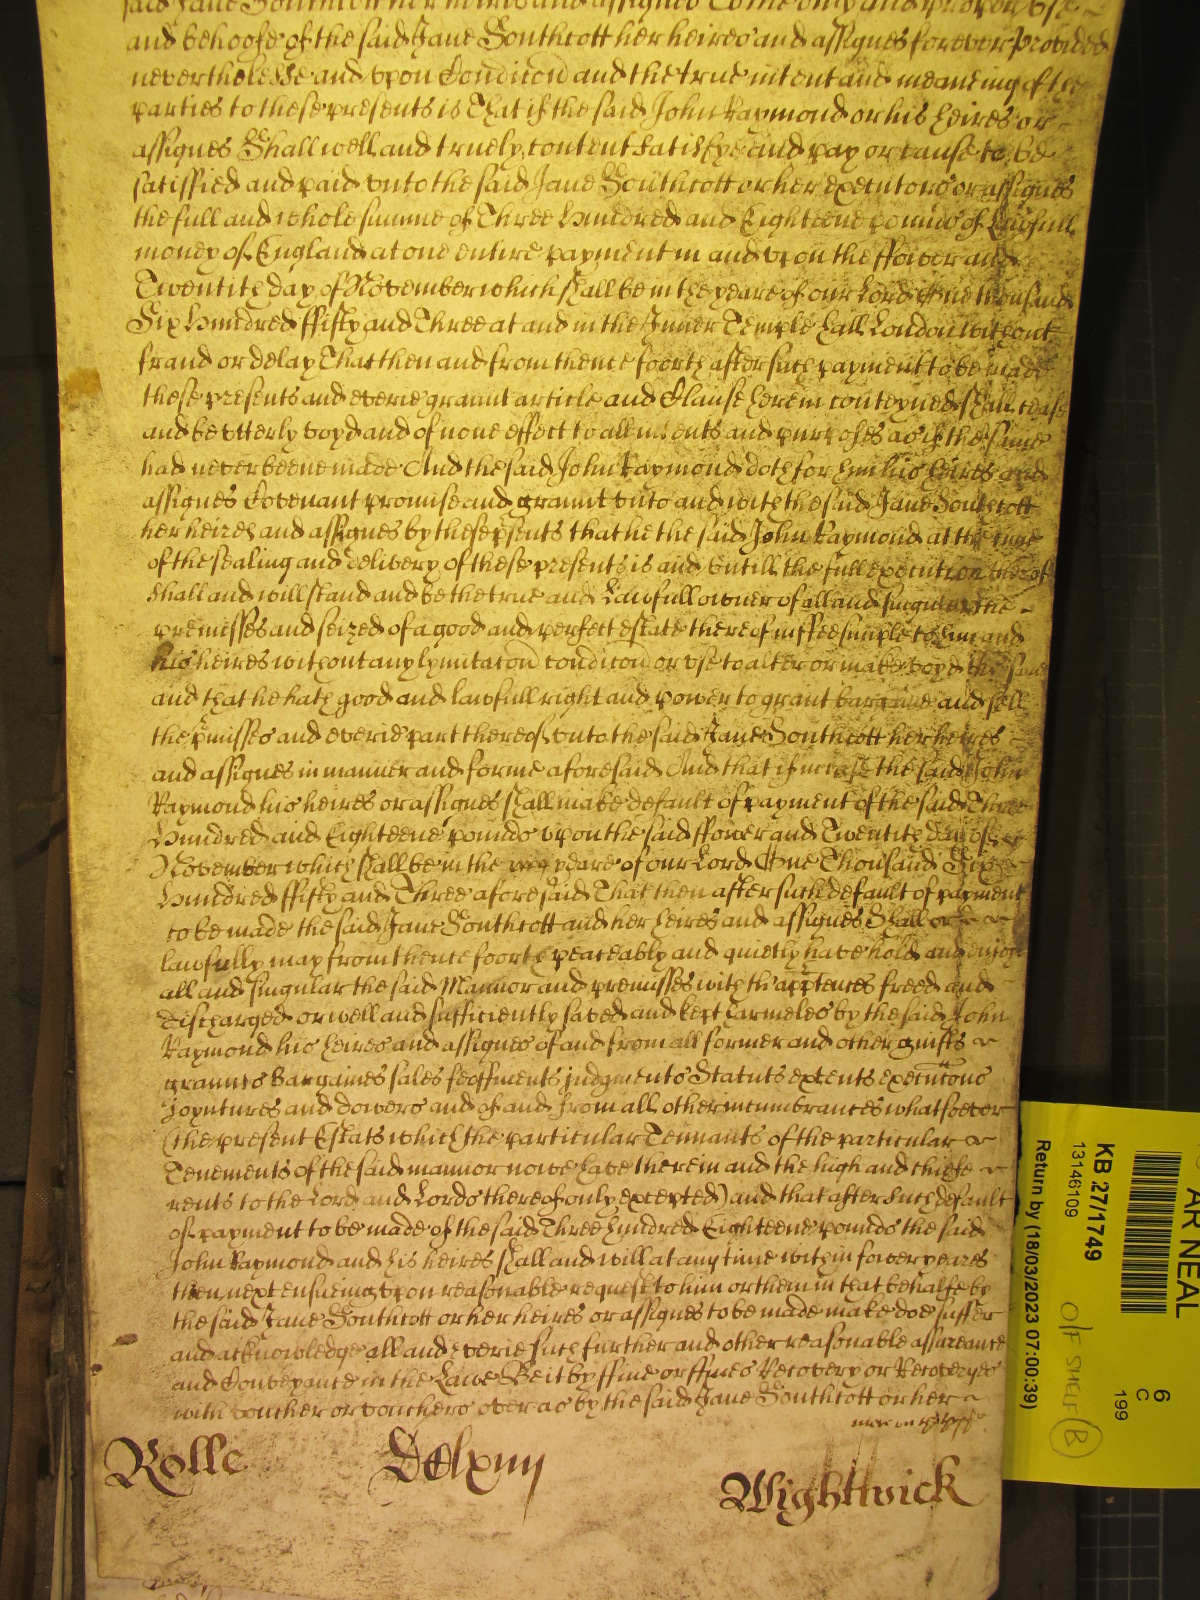 said Jane Southcott her heires and assignes To the only and proper vse
and behoofe of the said Jane Southcott her heires and assignes forever Provided
neverthelesse and vpon Condicion and the true intent and meaneing of the
parties to these presents is That if the said John Raymond or his heires or
assignes Shall well and truely content satisfye and pay or cause to be
satisfied and paid vnto the said Jane Southcott or her executors or assignes
the full and whole summe of Three Hundred and Eighteene pounds of Lawfull
money of England at one entire payment in and vpon the ffower and
Twentith day of November which shall be in the yeare of our Lord One thousand
Six Hundred ffifty and Three at and in the Inner Temple hall London without
fraud or delay That then and from thence foorth after such payment to be made
these presents and everie graunt article and Clause herein conteyned shall cease
and be vtterly voyd and of none effect to all intents and purposes as if the same
had never beene made And the said John Raymond doth for him his heires and
assignes Covenant promise and graunt vnto and with the said Jane Southcott
her heires and assignes by these psents that he the said John Raymond at the time
of the sealing and delivery of these presents is and vntill the full execution thereof
shall and will stand and be the true and Lawfull owner of all and singuler the
premisses and seized of a good and perfect estate thereof in ffee simple to him and
his heires without any lymitacon condicion or vse to alter or make voyd the same
and that he hath good and lawfull right and power to grant bargaine and sell
the pmisses and everie part thereof vnto the said Jane Southcott her heires
and assignes in manner and forme aforesaid And that if in case the said John
Raymond his heires or assignes shall make default of payment of the said Three
Hundred and Eighteene pounds vpon the said ffower and Twentith day of
November which shall be in the yeare of our Lord One Thousand Six
Hundred ffifty and Three aforesaid That then after such default of payment
to be made the said Jane Southcott and her heires and assignes Shall or
lawfully may from thence foorth peaceably and quietly have hold and enioy
all and singular the said Mannor and premisses with th'apptences freed and
discharged or well and sufficiently saved and kept harmeles by the said John
Raymond his heires and assignes of and from all former and other guifts
graunts Bargaines sales feoffments judgments Statuts extents execucons
joyntures and dowers and of and from all other incumbrances whatsoever
(the present Estats which the particular Tennants of the particular
Tenements of the said mannor nowe have therein and the high and chiefe
rents to the Lord and Lords thereof only excepted) and that after such default
of payment to be made of the said Three hundred Eighteene pounds the said
John Raymond and his heires shall and will at any time within fower yeares
then next ensueing vpon reasonable request to him or them in that behalfe by
the said Jane Southcott or her heires or assignes to be made make doe suffer
and acknowledge all and everie such further and other reasonable assureance
and Conveyance in the Lawe Be it by ffine or ffines Recovery or Recoveryes
with voucher or vouchers over as by the said Jane Southcott or her
Rolle Wightwick
AR NEAL
KB 27/1749
13146109
Return by (18/03/2023 07:00:39)
6
C
199
O/F SHELF B